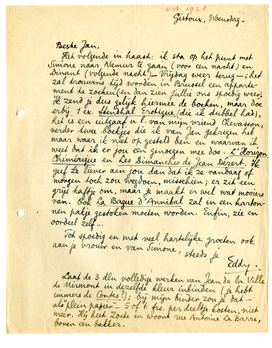 Gistoux, Woensdag.
Beste Jan,
Het volgende in haast: ik sta op het punt met
Simone naar Namen te gaan (voor een nacht) en
Dinant (volgende nacht). Vrijdag weer terug – ; het
zal trouwens tijd worden in Brussel een apparte-
ment te zoeken (en dan zien jullie ons spoedig weer).
Ik zend je dus gelijk hiermee de boeken, maar doe
erbij 1 ex. Stendhal Erotique (die ik dubbel had),
het is een uitgaaf v. één van mijn vrienden,
verder twee boekjes die ik van Jan gekregen heb
maar waar ik niet op gesteld ben en waarvan ik
weet dat ik er jou een genoegen mee doe: L'Horizon
Chimérique en Les Dimanches de Jean Dézert. Ik
geef ze liever aan jou dan dat ik ze vandaag of
morgen toch zou wegdoen, misschien; er zit een
grijs kaftje om, maar je maakt er wel wat moois
van. Ook La Bague d'Annibal zal in een karton-
nen pakje gestoken moeten worden. Enfin, zie en
oordeel zelf...
Tot spoedig en met veel hartelijke groeten ook
aan je vrouw en van Simone, steeds je
Eddy.
Laat de 3 dln volledige werken van Jean de la Ville
de Mirmont in dezelfde kleur inbinden (je hebt
immers de Contes?): bij mijn binder zou je dat
als plein papier – 5 of 6 frs. per deeltje kosten, niet
meer. Hij heet Zoete en woont rue Antoine La Barre,
boven een bakker.